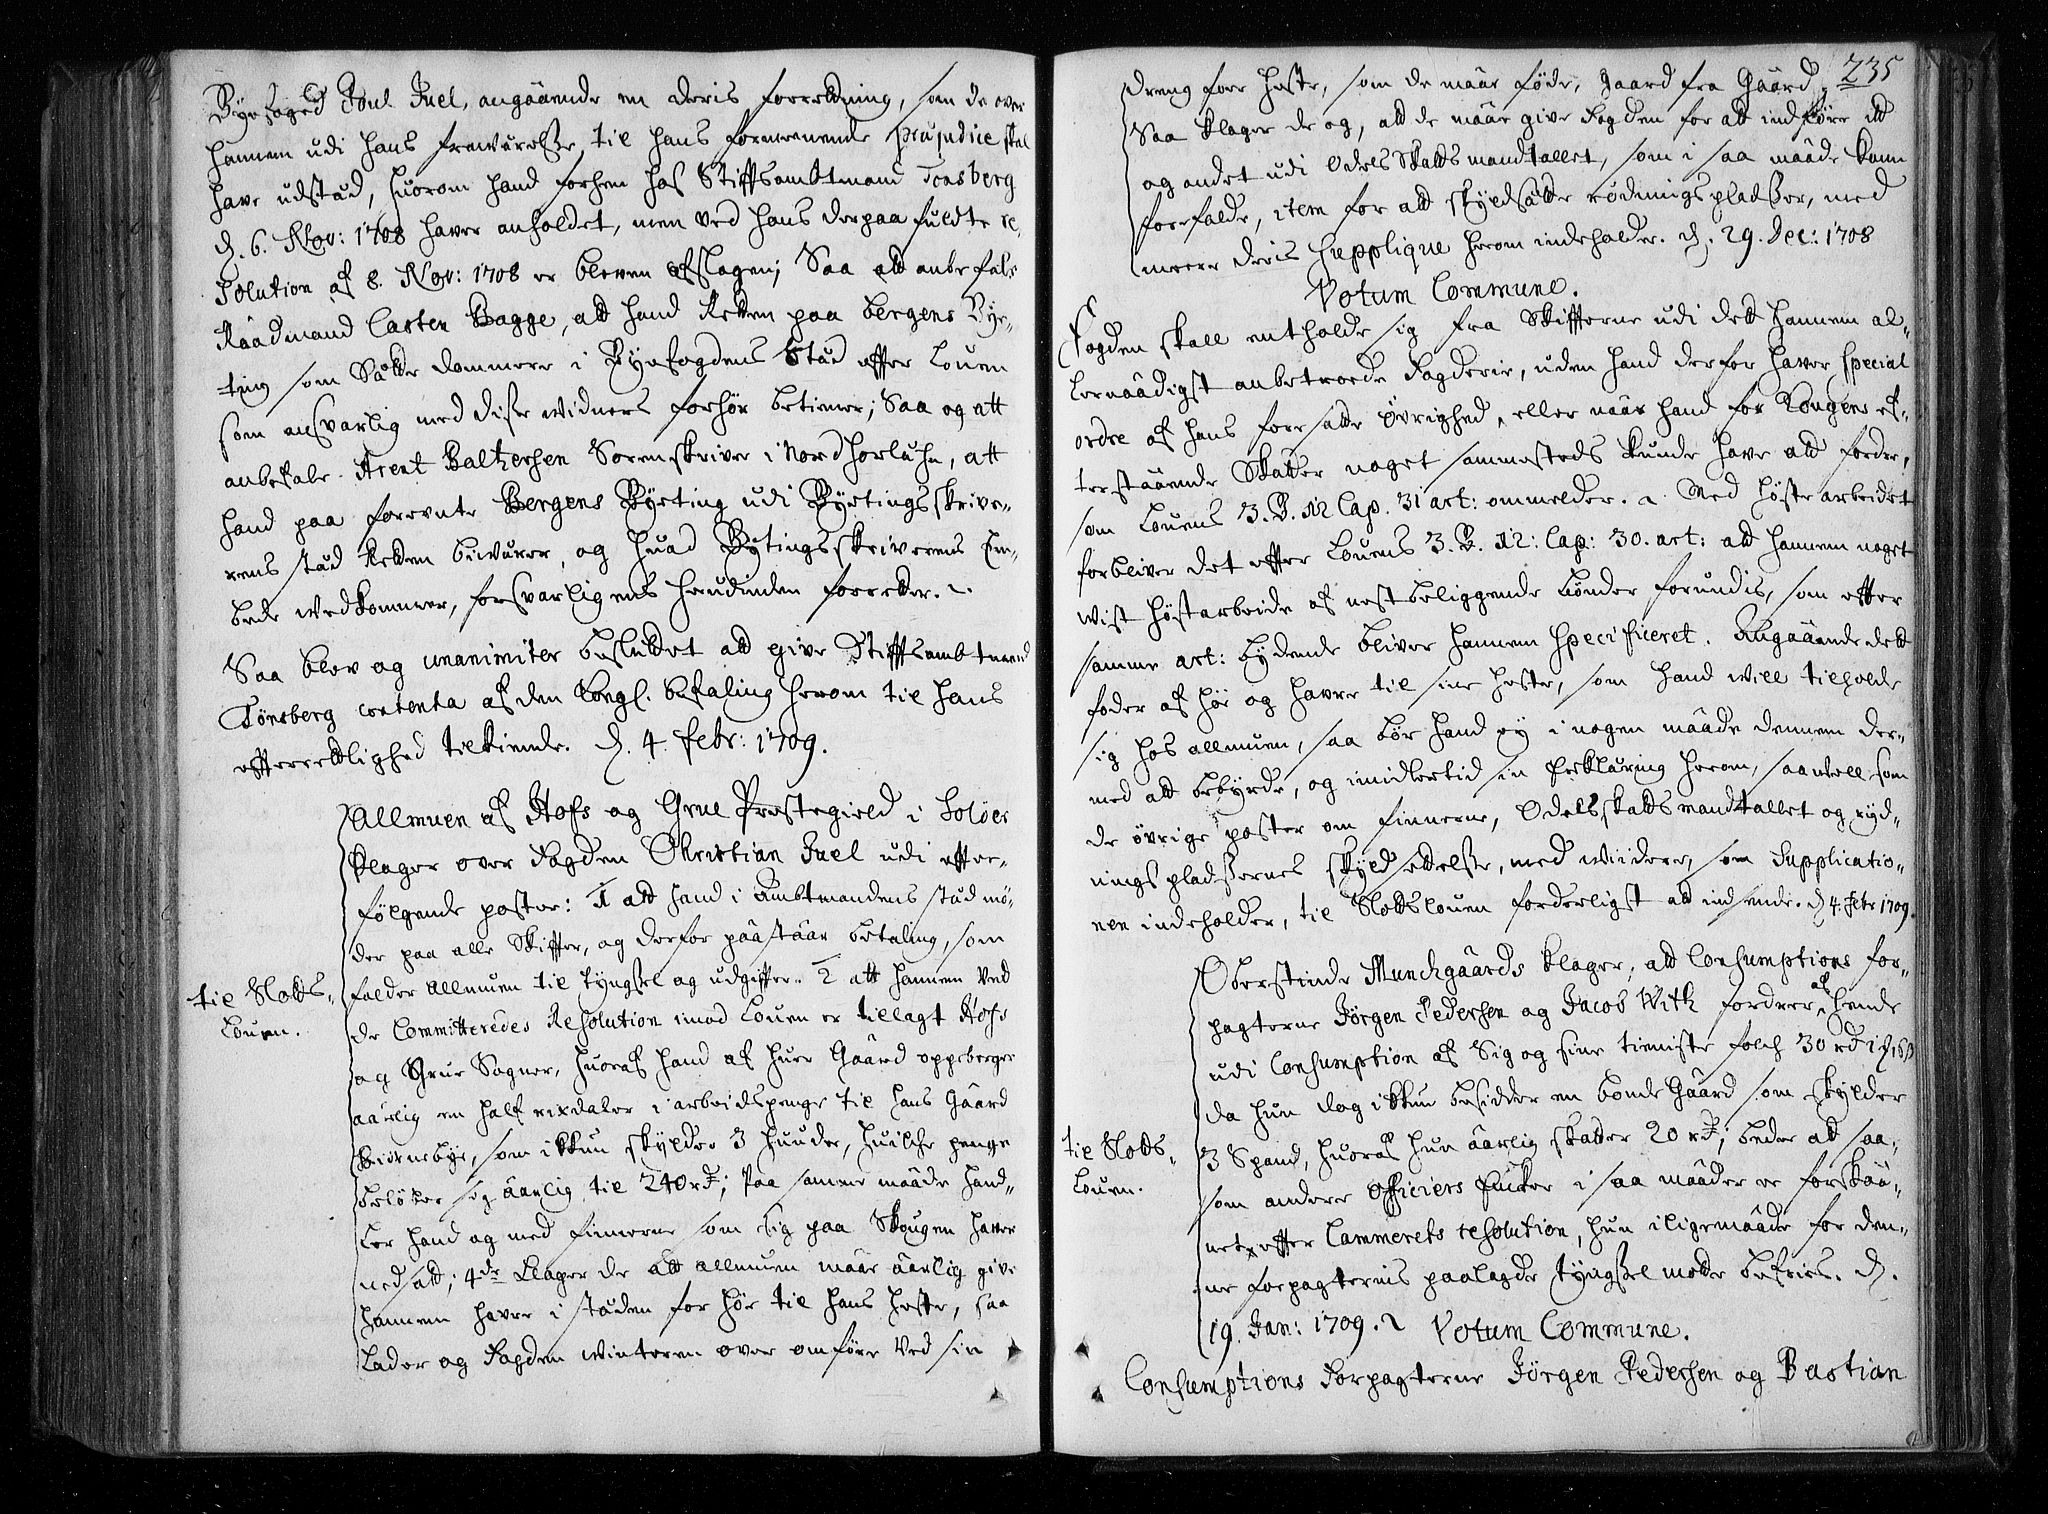 Byefoged Poul Juel, angaaende en deris forretning, som de over
hannem udi hans frawærelse til hans formeenende præjudice skal
have udstæd, huorom hand forhen hos Stifftsambtmand Tonsberg
d. 6. Nov: 1708 haver anholdet, men ved hans derpaa fuldte re-
solution af 8. Nov: 1708 er bleven afslagen; Saa att anbefale
Raadmand Casten Bagge, att hand Retten paa Bergens Bye-
ting som Satte dommere i Byefogdens stæd effter Louen
som ansvarlig med disse widners forhør betiener; Saa og att
anbefale Arent Baltzersen Sorenskriver i Nordhorlehn, att
hand paa forevnte Bergens Byeting udi Byetingsskrive-
rens stæd Retten biwærer, og huad Bytingsskriverens Em-
bede wedkommer, forsvarligens herudinden foretter.
Saa blev og unanimiter besluttet att give Stifftsambtmand
Tønsberg contenta af den kongl. befaling herom til hans
effterretlighed tilkiende. d. 4. febr: 1709.
Allmuen af Hofs og Grue Præstegield i Soløer
klager over Fogden Christian Juel udi effter-
følgende poster: 1 att hand i Ambtmandens stæd mø-
der paa alle Skiffter, og derfor paastaar betaling, som
falder allmuen til tyngsel og udgiffter. 2 att hannem ved
til Slotts-
Louen.
de Committeredes Resolution imod Louen er tillagt Hofs
og Grue Sogner, huoraf hand af huer Gaard oppeberger
aarlig en half rixdaler i arbeidspenge til hans Gaard
Biørnebye, som ikkun skylder 3 huuder, huilche penge
beløber sig aarlig til 240 rd; Paa samme maade hand-
ler hand og med finnerne som sig paa Skougen haver
nedsatt; 4de klager de att allmuen maae aarlig give
hannem havre i stæden for høe til hans heste, saa
lader og Fogden winteren over omføre ved sin
235
dreng fore heste, som de maae føde, gaard fra Gaard,
Saa klager de og, att de maae give Fogden for att indføre ett
og andet udi Odels Skatts mandtallet, som i saa maade kann
forefalde, item for att skyldsætte rødningspladser, med
meere deris Supplique herom indeholder. d. 29. Dec: 1708
Votum Commune.
Fogden skall entholde sig fra Skiffterne udi dett hannem al-
lernaadigst anbetroede Fogderie, uden hand derfor haver special
ordre af hans foresatte Øvrighed, eller naar hand for Kongens ef-
terstaaende Skatter noget sammesteds kunde have att fordre,
som Louens 3. B. 12 Cap. 31 art: ommelder. Med høste arbeidet
forbliver det effter Louens 3. B. 12: Cap: 30. art: att hannem noget
wist høstarbeide af nestbeliggende bønder forundis, som effter
samme art: lydende bliver hannem specificeret. Angaaende dett
foder af høe og havre til sine heste, som hand will tilholde
sig hos allmuen, saa bør hand ey i nogen maade dennem der-
med att bebyrde, og imidlertid sin Erklæring herom, saawell som
de øvrige poster om finnerne, Odelsskattsmandtallet og ryd-
ningspladsernes skyldsettelse, med wiidere, som Supplicatio-
nen indeholder, til Slottslouen forderligst att indsende. d. 4. febr 1709.
Oberstinde Munchgaards klager, att Consumptions for-
pagterne Jørgen Pedersen og Jacob With fordrer af hende
udi Consumption af Sig og sine tieniste folch 30 rd
da hun dog ikkun besidder en bonde Gaard som skylder
til Slotts-
Louen.
3 Spand, huoraf hun aarlig skatter 20 rd; beder att saa-
som andere Officiers Encker i saa maader er forskaa-
net effter Cammerets resolution, hun iligemaade for den-
ne forpagternis paalagde tyngsel motte befries. d.
19. Jan: 1709. Votum Commune.
Consumptions Forpagterne Jørgen Pedersen og Bastian